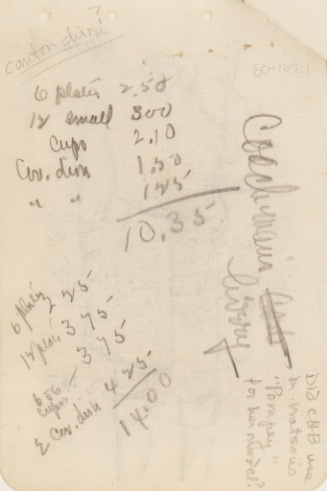 ?
canton china
80-167.1
6 plates 2.50
12 small 300
Cups 2.10
Cov. dish 1.50
" " 125
10.35
Coachman's
livery
6 plates 2 25
12 plates 3 75
3 75
cups
2 Cov. dish 4 25
14.00
Did CHB use
M. Watson's
"Pompey"
for her model?